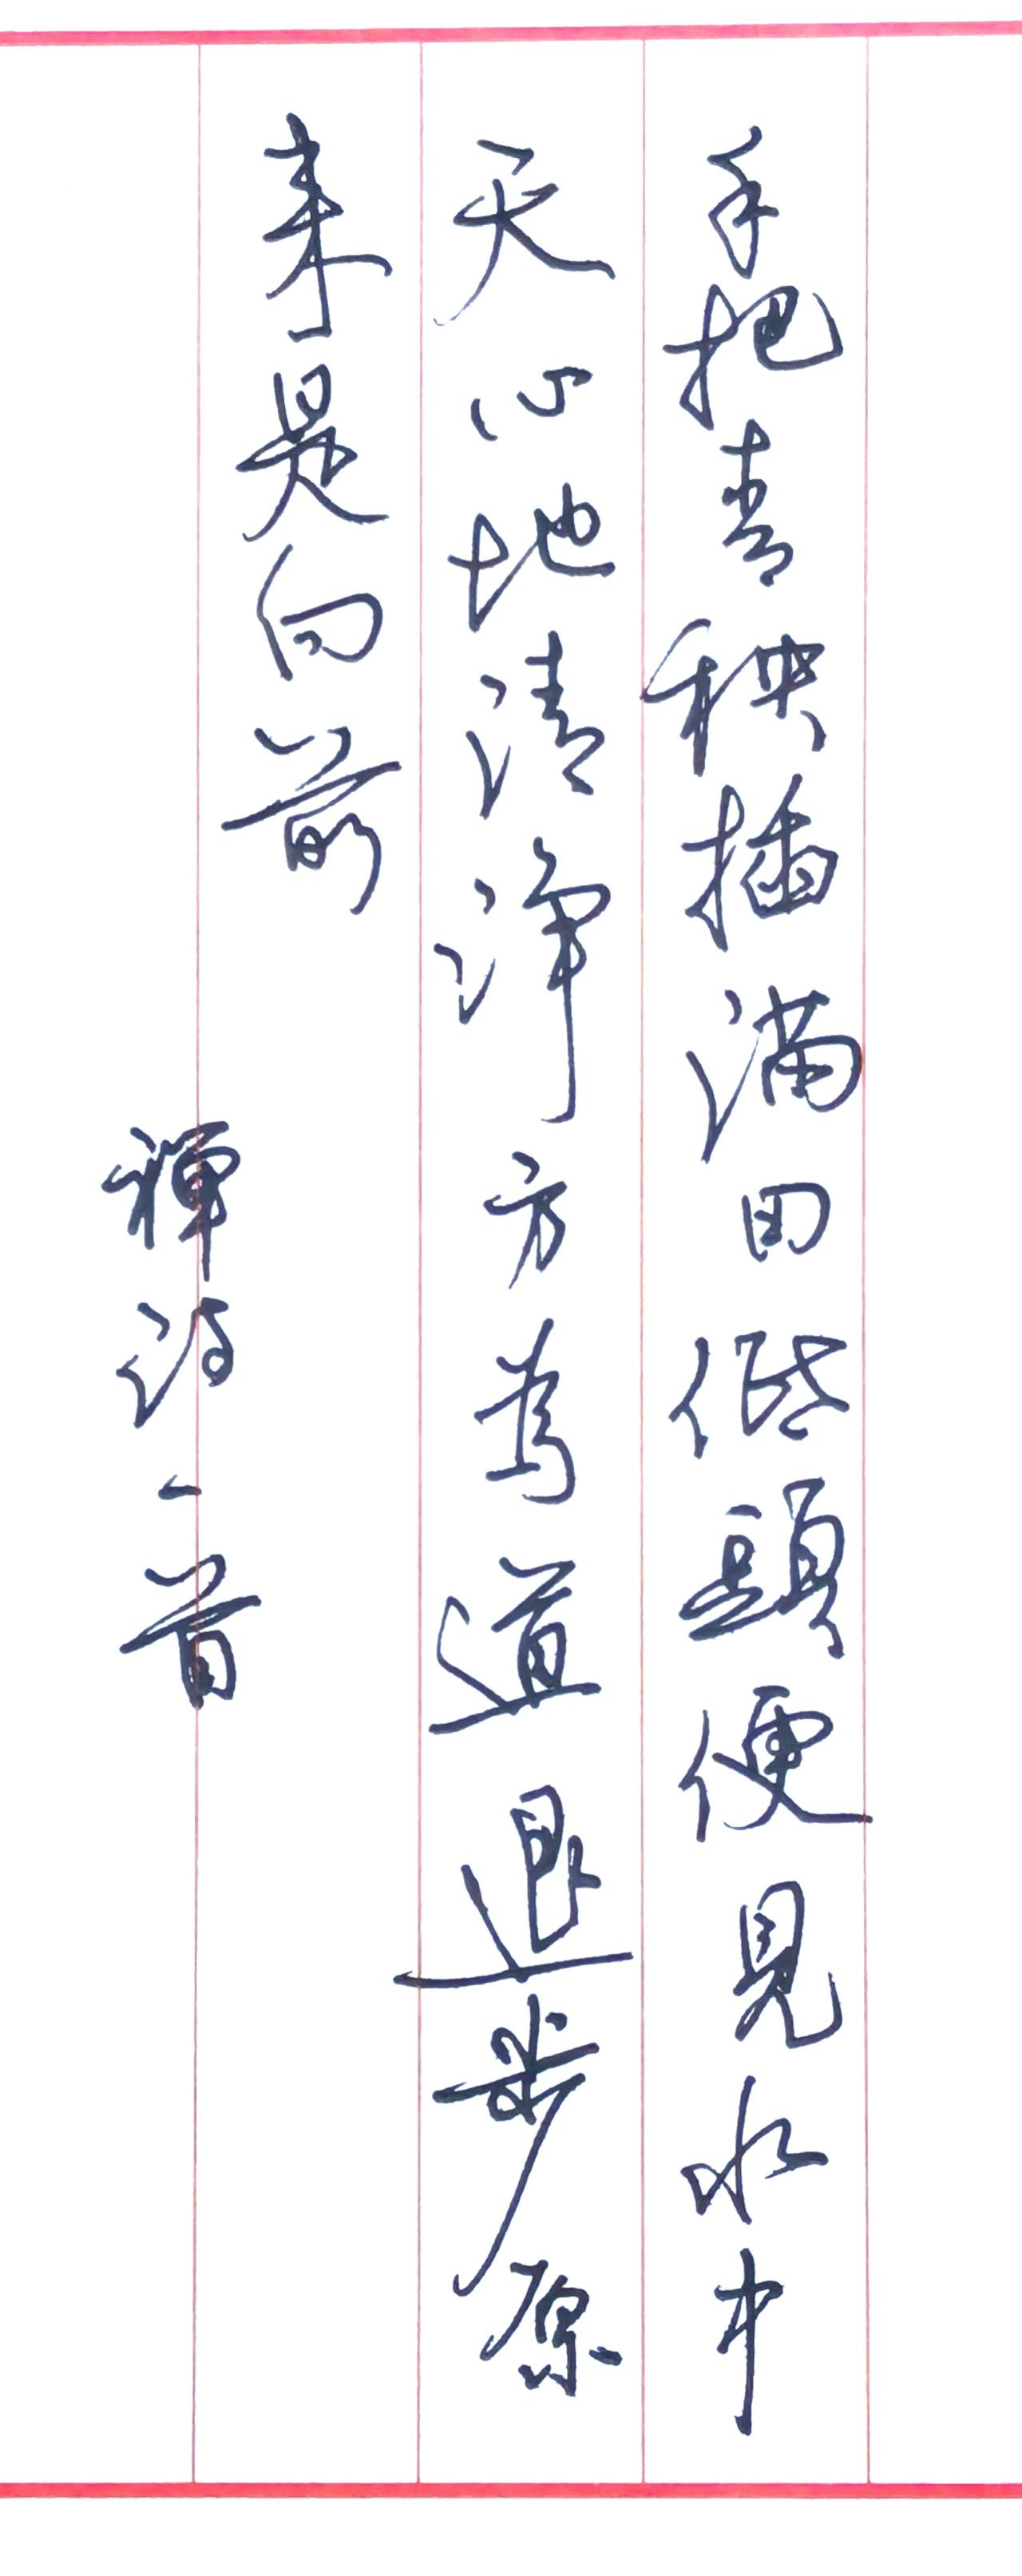 手把青秧插满田低頭便見水中
天心地清淨方為道退步原
来是向前
禅诗一首